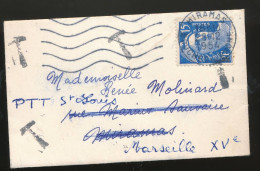 MIRAMAS
15F
Mademoiselle
Renée Molinard
PTT St Louis
rue Marius
Miramas
Marseille XVe